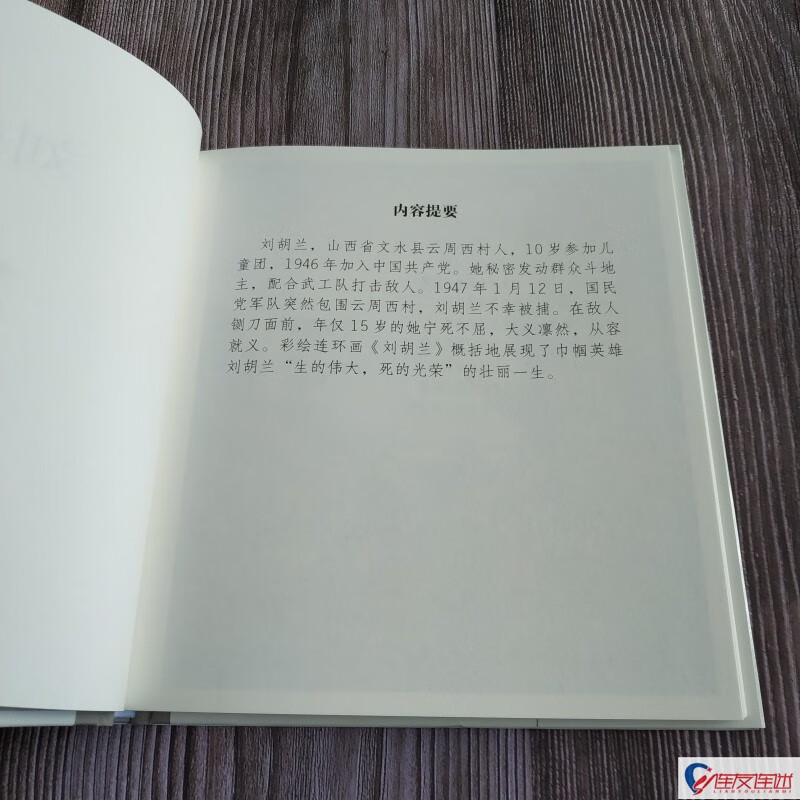 内容提要
刘胡兰，山西省文水县云周西村人，10岁参加儿
童团，1946年加入中国共产党。她秘密发动群众斗地
主，配合武工队打击敌人。1947年1月12日，国民
党军队突然包围云周西村，刘胡兰不幸被捕。在敌人
铡刀面前，年仅15岁的她宁死不屈，大义凛然，从容
就义。彩绘连环画《刘胡兰》概括地展现了巾帼英雄
刘胡兰“生的伟大，死的光荣”的壮丽一生。
连友连博
LIANYOULIANHU